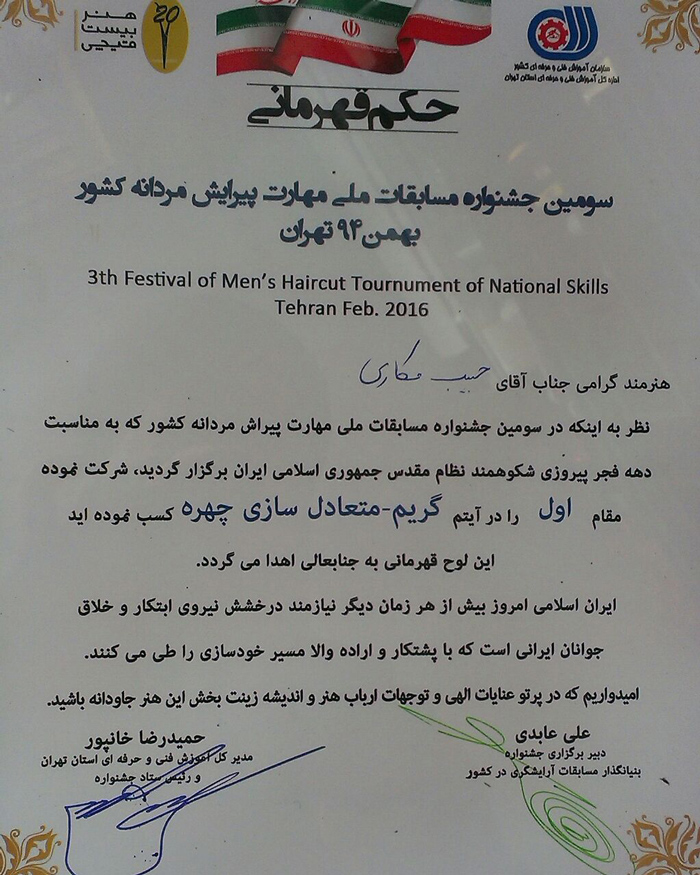 هنر
بیست
قیچی
سازمان آموزش فنی و حرفه ای کشور
اداره کل آموزش فنی و حرفه ای استان تهران
حکم قهرمانی
سومین جشنواره مسابقات ملی مهارت پیرایش مردانه کشور
بهمن ۹۴ تهران
3th Festival of Men's Haircut Tournument of National Skills
Tehran Feb. 2016
هنرمند گرامی جناب آقای حبیب مکاری
نظر به اینکه در سومین جشنواره مسابقات ملی مهارت پیراش مردانه کشور که به مناسبت
دهه فجر پیروزی شکوهمند نظام مقدس جمهوری اسلامی ایران برگزار گردید، شرکت نموده
مقام اول را در آیتم گریم-متعادل سازی چهره کسب نموده اید
این لوح قهرمانی به جنابعالی اهدا می گردد.
ایران اسلامی امروز بیش از هر زمان دیگر نیازمند درخشش نیروی ابتکار و خلاق
جوانان ایرانی است که با پشتکار و اراده والا مسیر خودسازی را طی می کنند.
امیدواریم که در پرتو عنایات الهی و توجهات ارباب هنر و اندیشه زینت بخش این هنر جاودانه باشید.
علی عابدی
دبیر برگزاری جشنواره
بنیانگذار مسابقات آرایشگری در کشور
حمیدرضا خانپور
مدیر کل آموزش فنی و حرفه ای استان تهران
و رئیس ستاد جشنواره